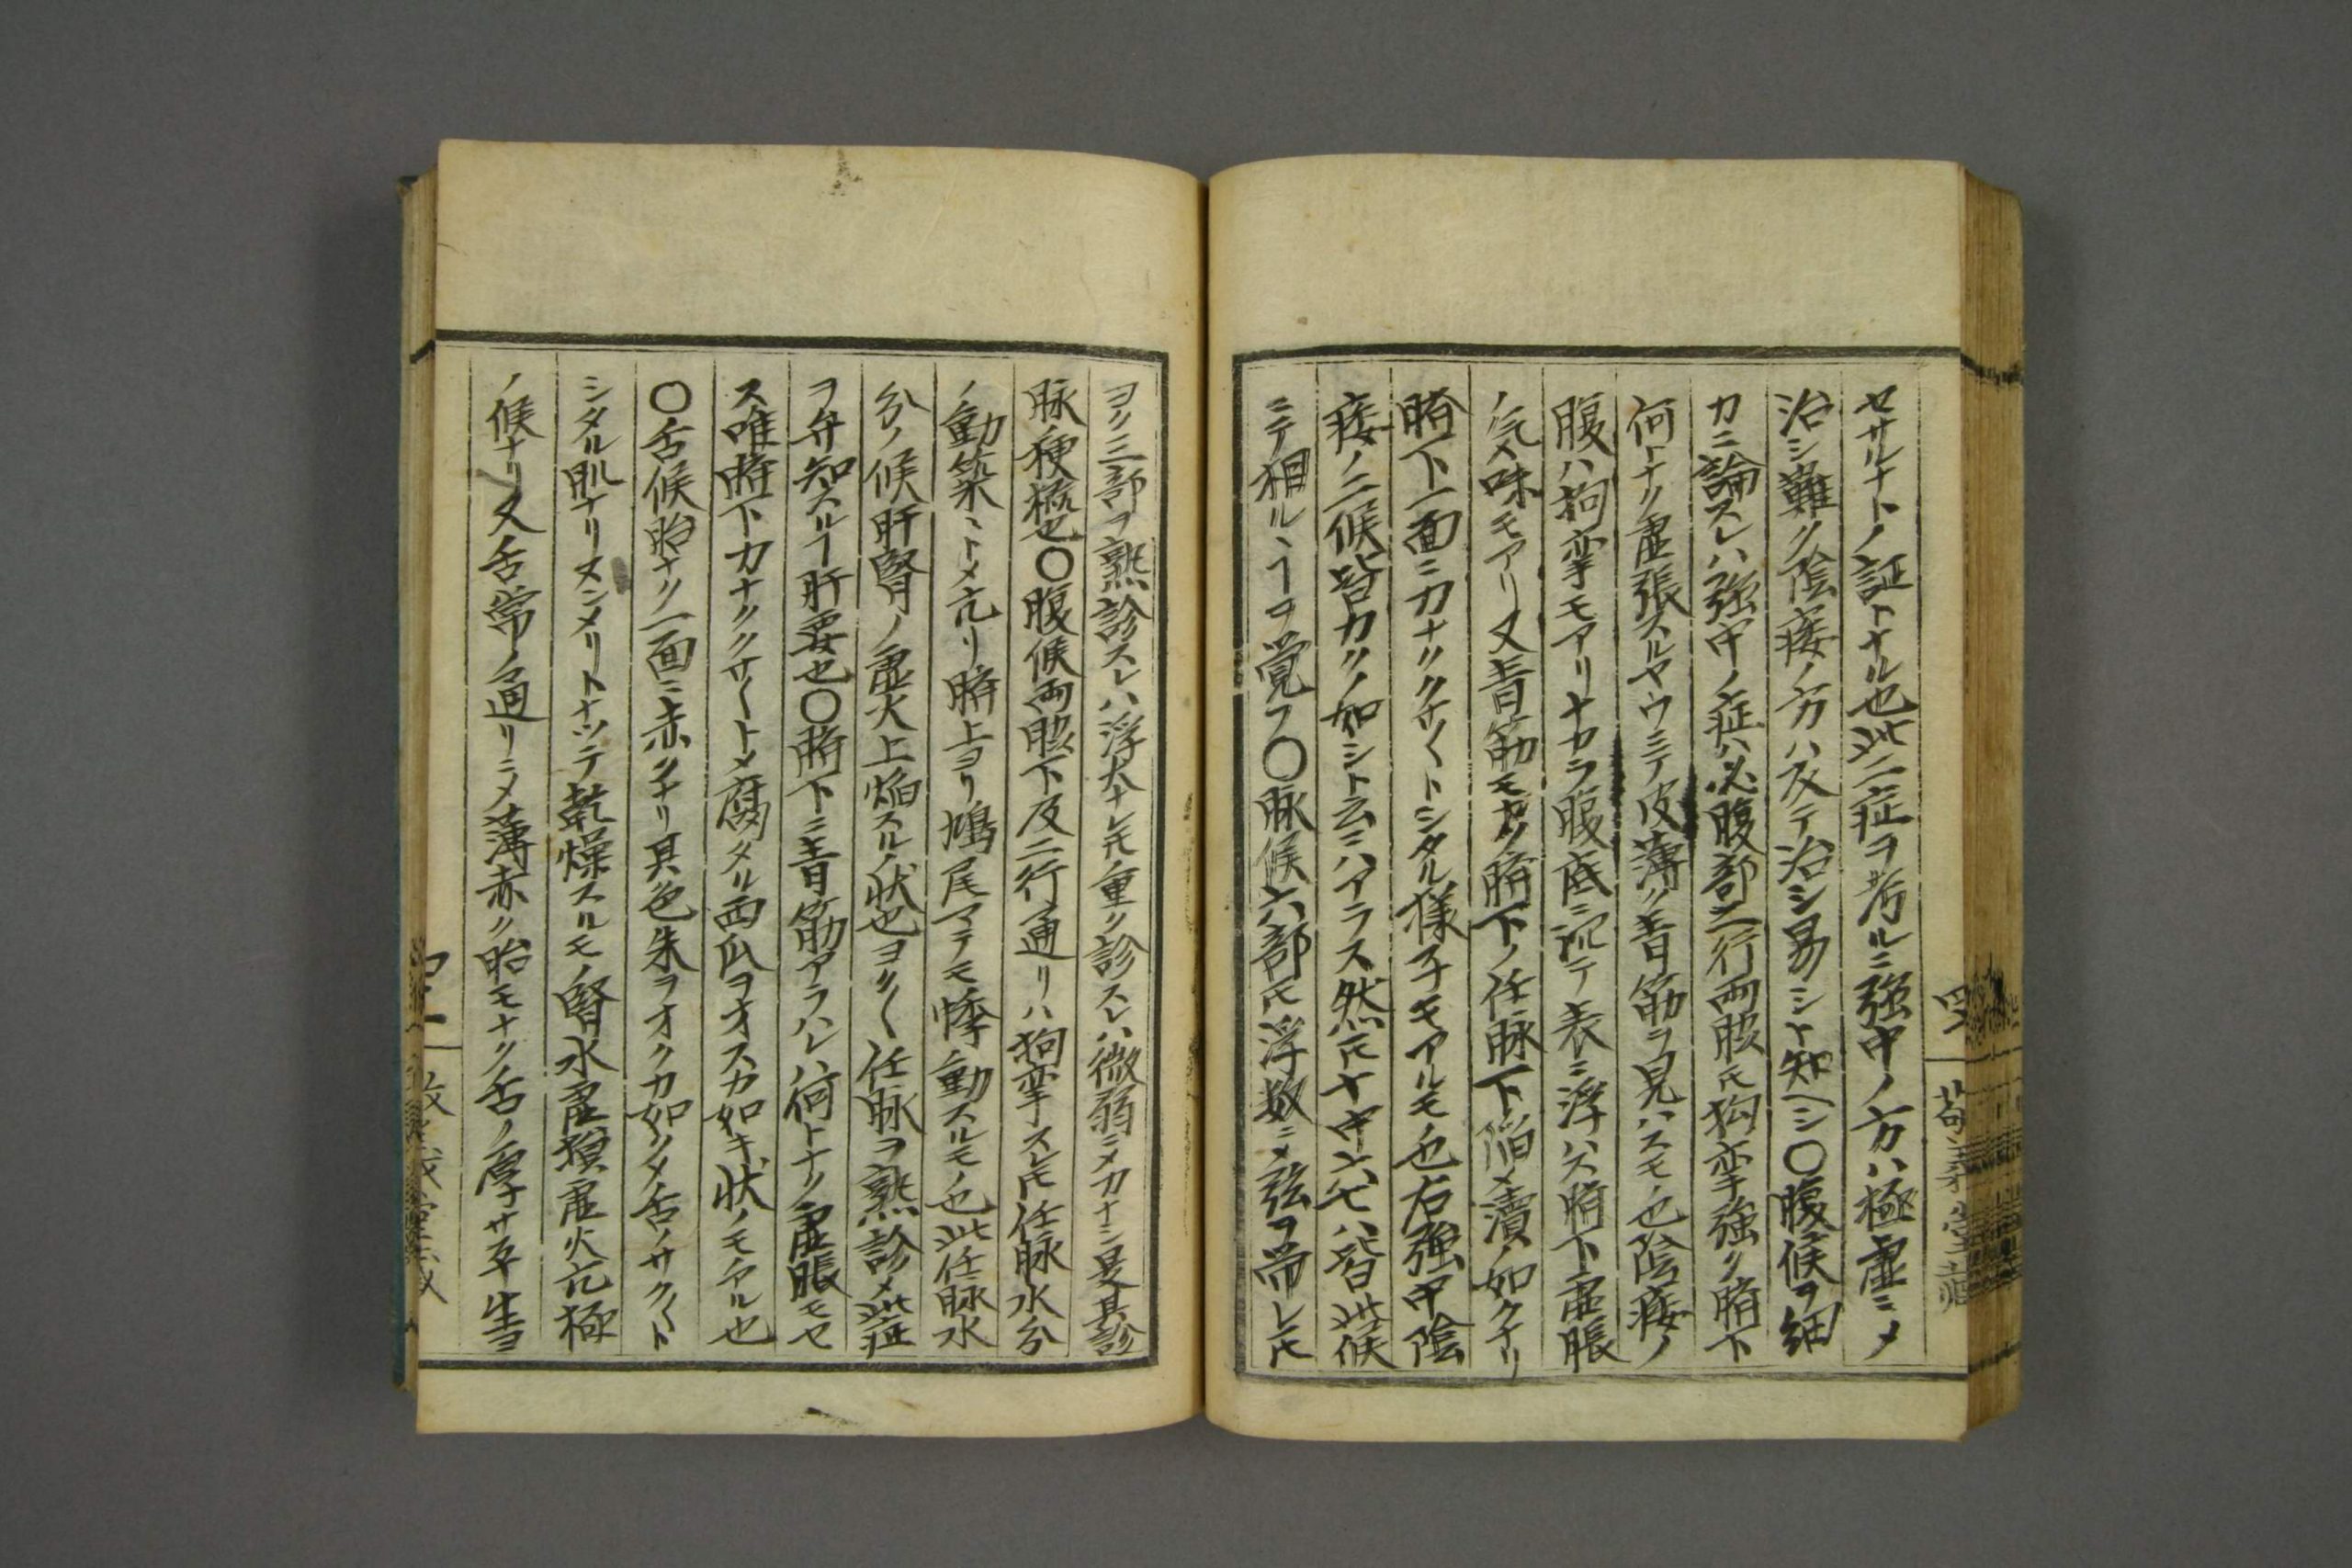 セサルナトノ証トナル也此二症ヲ考ルニ強中ノ方ハ極虚ニメ
治シ難ク陰痿ノ方ハ反テ治シ易シト知ヘシ〇腹候ヲ細
カニ論スレハ強中ノ症ハ必腹部二行両肢𪜈拘攣強ク臍下
何トナク虚張スルヤウニテ皮薄ク青筋ヲ見ハスモノ也陰痿ノ
腹ハ拘攣モアリナカラ腹底ニ沉テ表ニ浮ハス臍下虚脹
ノ気味モアリ又青筋モナク臍下ノ任脉下陷メ溝ノ如クナリ
臍下一面ニ力ナククサ〱トシタル様子モアルモノ也右強中陰
痿ノ二候皆カクノ如シト云ニハアラス然𪜈十中六七ハ皆此候
ニテ相ルヽヿヲ覚フ〇脉候六部𪜈浮数ニメ弦ヲ帯レ𪜈
ヨク三部ヲ熟診スレハ浮大ナレ𪜈重ク診スレハ微弱ニメ力ナシ是其診
脉ノ樞機也〇腹候両肢下及二行通リハ拘攣スレ𪜈任脉水分
ノ動築〻トメ亢リ臍上ヨリ鳩尾マテモ悸動スルモノ也此任脉水
分ノ候肝腎ノ虚火上焔スルノ状也ヨク〱任脉ヲ熟診メ此症
ヲ弁知スルヿ肝要也〇臍下ニ青筋アラハレ何トナク虚脹モセ
ス唯臍下力ナククサ〱トメ腐タル西瓜ヲオスカ如キ状ノモアル也
〇舌候胎ナク一面ニ赤クナリ其色朱ヲオクカ如クメ舌ノサク〱ト
シタル肌ナリヌンメリトナツテ乾燥スルモノ腎水虚損虚火亢極
ノ候ナリ又舌常ノ通リニメ薄赤ク胎モナク舌ノ厚サ平生ヨ